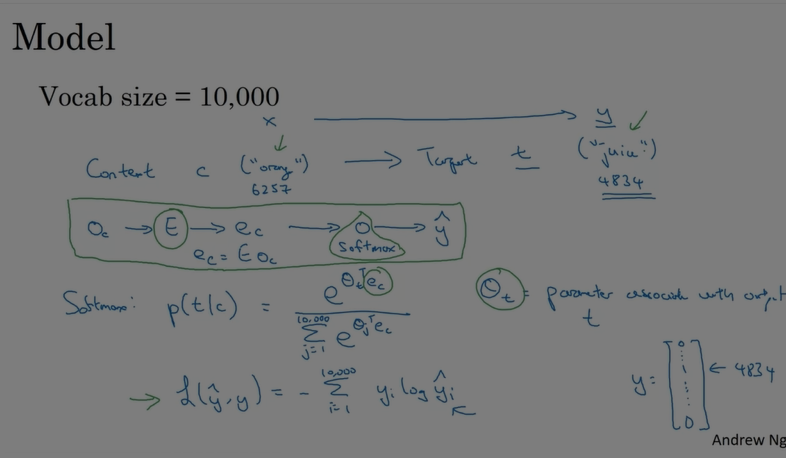 Model
Vocab size = 10,000
x → y
Context c ("orange") → Target t ("juice")
6257 4834
O_c → E → e_c → o → ŷ
softmax
e_c = E O_c
Softmax: p(t|c) = e^{θ_t^T e_c} / Σ_{j=1}^{10,000} e^{θ_j^T e_c}
θ_t = parameter associated with output t
→ L(ŷ, y) = - Σ_{i=1}^{10,000} y_i log ŷ_i
y = [0 ⋮ 1 ⋮ 0] ← 4834
Andrew Ng